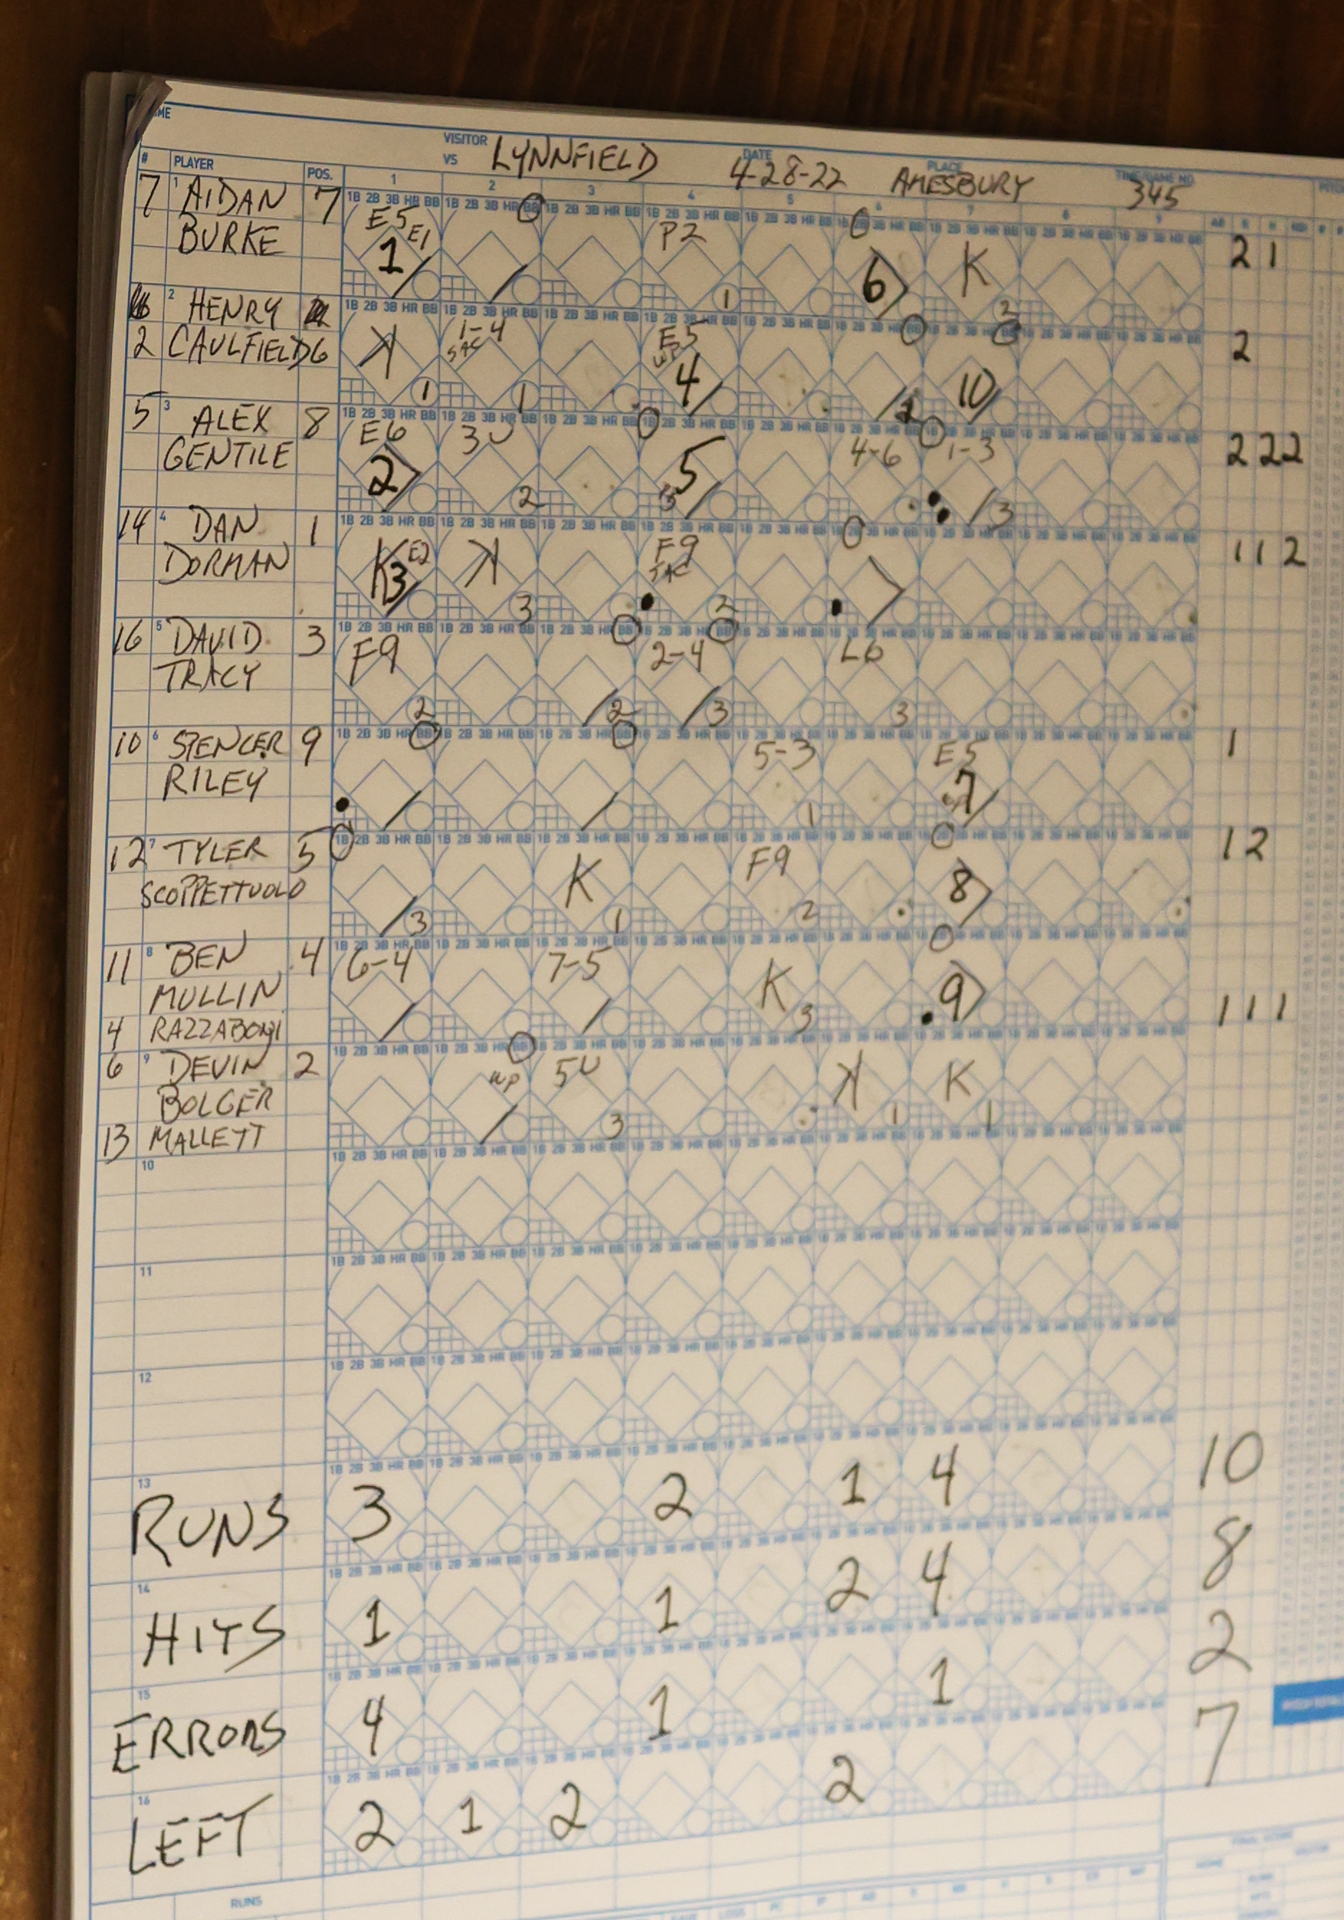 VISITOR
VS LYNNFIELD DATE 4-28-22 PLACE AMESBURY 345
# PLAYER POS. 1 2 3 4 5 6 7 8 9
7 1 AIDAN 7
BURKE
E5 E1 1 P2 1 6 K 2 2 1
2 HENRY
2 CAULFIELD 6
K 1 1-4 SAC 1 E5 4 10 2
5 3 ALEX 8
GENTILE
E6 2 3U 2 5 4-6 1-3 3 2 2 2
14 4 DAN 1
DORMAN
K3 E2 K 3 F9 SAC 2 1 1 2
16 5 DAVID 3
TRACY
F9 2 2 2-4 3 L6 3
10 6 SPENCER 9
RILEY
5-3 1 E5 7 1
12 7 TYLER 5
SCOPPETTUOLO
3 K 1 F9 2 8 1 2
11 8 BEN 4
MULLIN
4 RAZZABONI
6-4 7-5 K 3 9 1 1 1
6 9 DEVIN 2
BOLGER
13 MALLETT
WP 5U 3 K 1 K 1
10
11
12
13
RUNS 3 2 1 4 10
14
HITS 1 1 2 4 8
15
ERRORS 4 1 1 2
16
LEFT 2 1 2 2 7
RUNS